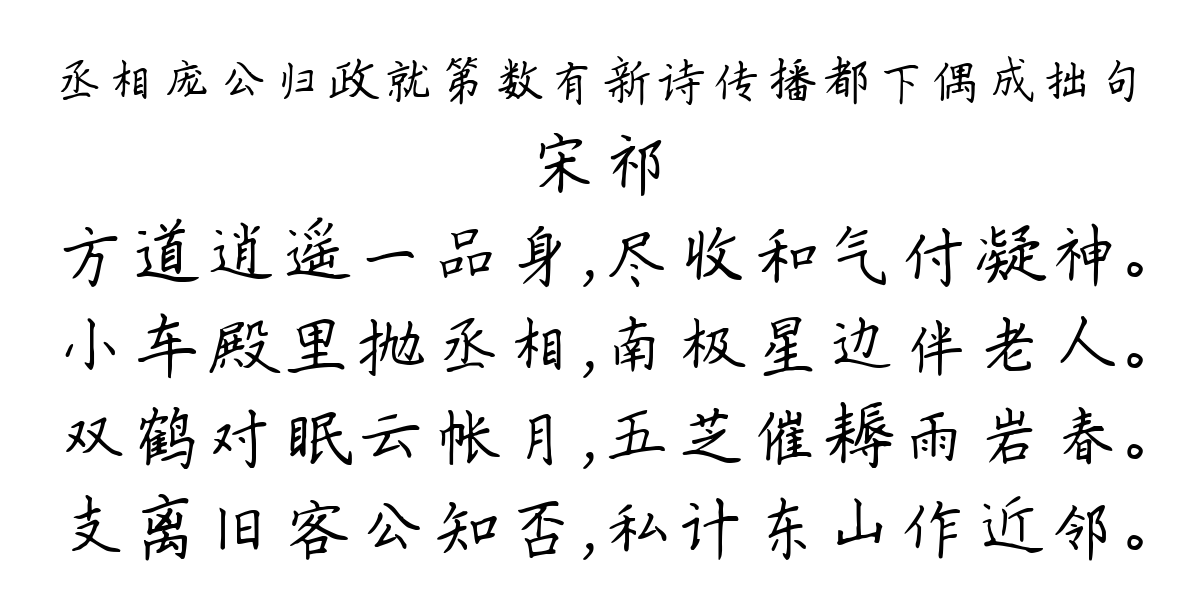 丞相庞公归政就第数有新诗传播都下偶成拙句
宋祁
方道逍遥一品身,尽收和气付凝神。
小车殿里抛丞相,南极星边伴老人。
双鹤对眠云帐月,五芝催耨雨岩春。
支离旧客公知否,私计东山作近邻。